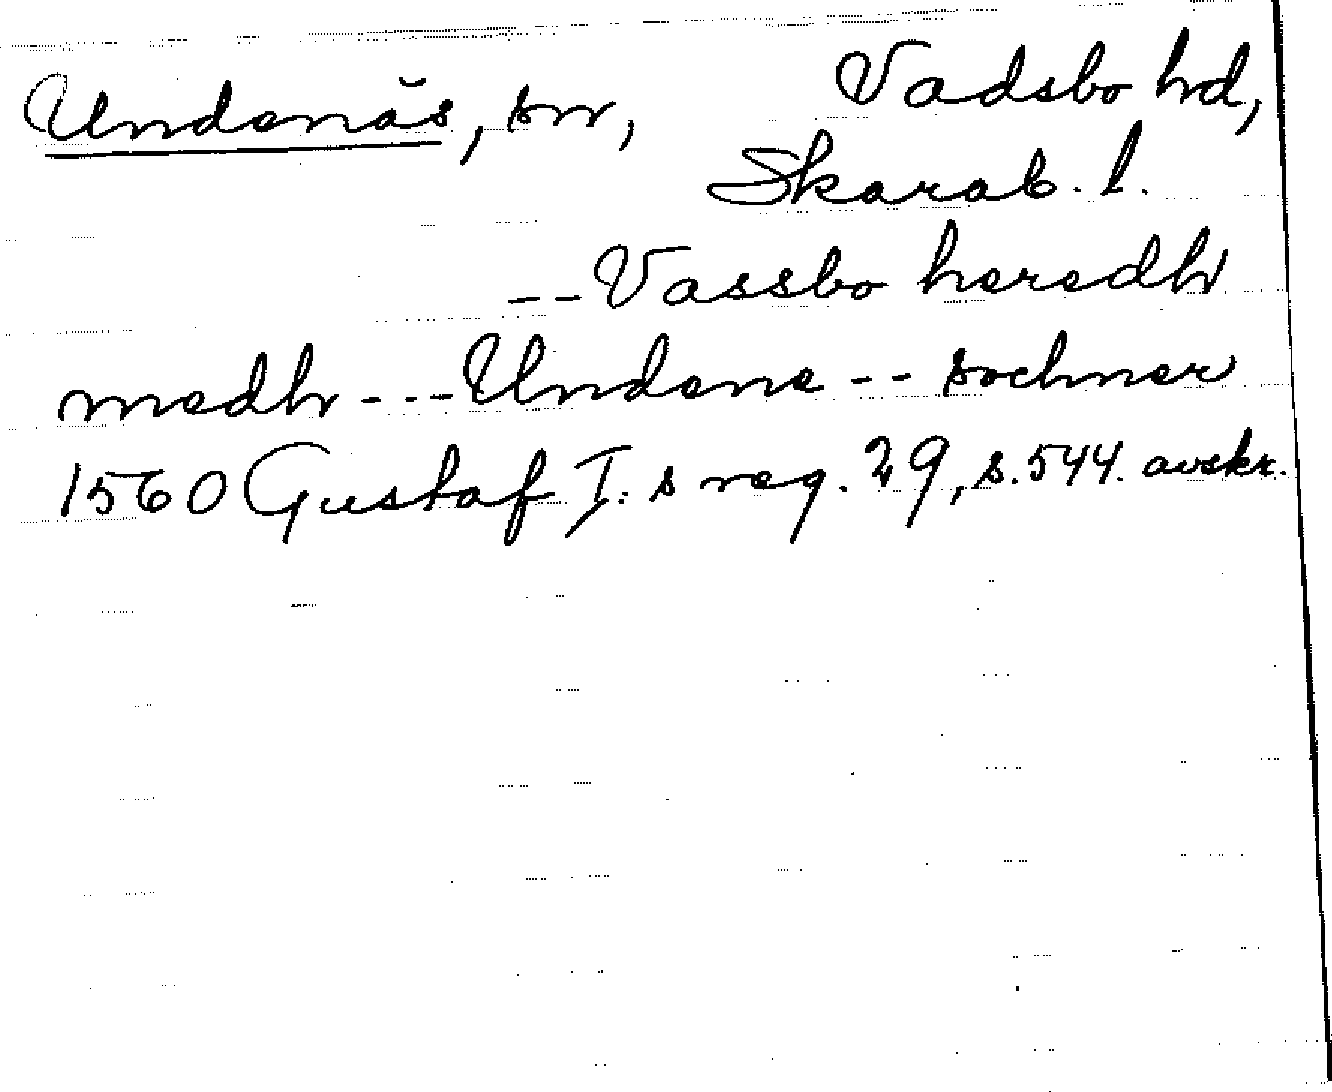 Undenäs, sn, Vadsbo hd,
Skarab. l.
-- Vassboheredh
medh --- Undene -- sochner
1560 Gustaf I:s reg. 29, s. 544. avskr.